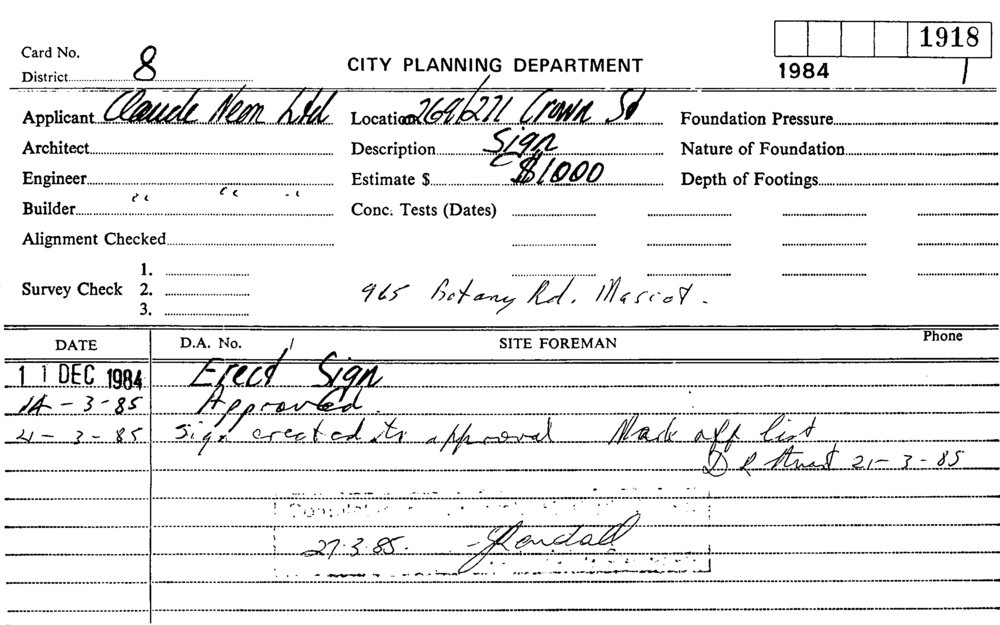 Card No.
District 8
CITY PLANNING DEPARTMENT
1918
1984
Applicant Claude Neon Ltd
Location 269/271 Crown St
Foundation Pressure
Architect
Description Sign
Nature of Foundation
Engineer
Estimate $ $1000
Depth of Footings
Builder " " "
Conc. Tests (Dates)
Alignment Checked
Survey Check 1.
2.
3.
965 Botany Rd. Mascot.
DATE D.A. No. SITE FOREMAN Phone
11 DEC 1984 Erect Sign
14-3-85 Approved.
21-3-85 Sign erected to approval Mark off list
D R Stuart 21-3-85
27.3.85.